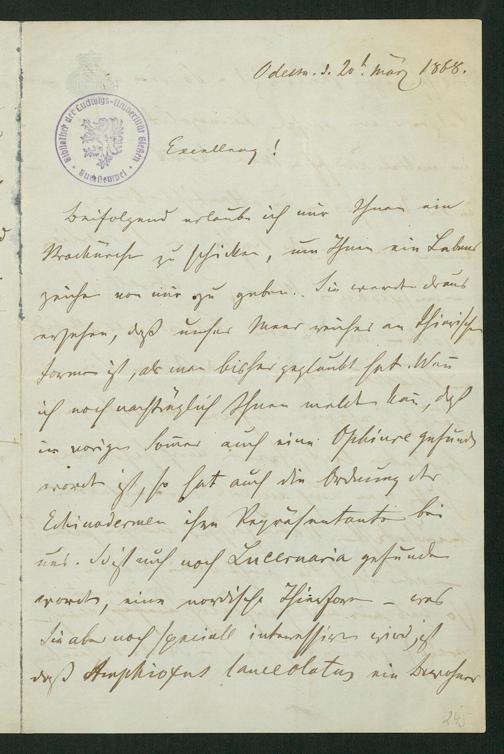 Odessa. d. 20t. März 1868.
Bibliothek der Ludwigs-Universität Gießen
Buchstempel
Excellenz!
Beifolgend erlaube ich mir Ihnen ein
Brochürche zu schicken, um Ihnen ein Lebens
zeichen von mir zu geben. Sie werden draus
ersehen, daß unser Meer reicher an thierischen
Formen ist, als man bisher geglaubt hat. Wenn
ich noch nachträglich Ihnen melden kann, daß
im vorigen Sommer auch eine Ophiure gefunden
worden ist, so hat auch die Ordnung der
Echinodermen ihren Repräsentanten bei
uns. So ist auch noch Lucernaria gefunden
worden, eine nordische Thierform – was
Sie aber noch speciell interessiren wird, ist
daß Amphioxus lanceolatus ein Bewohner
245